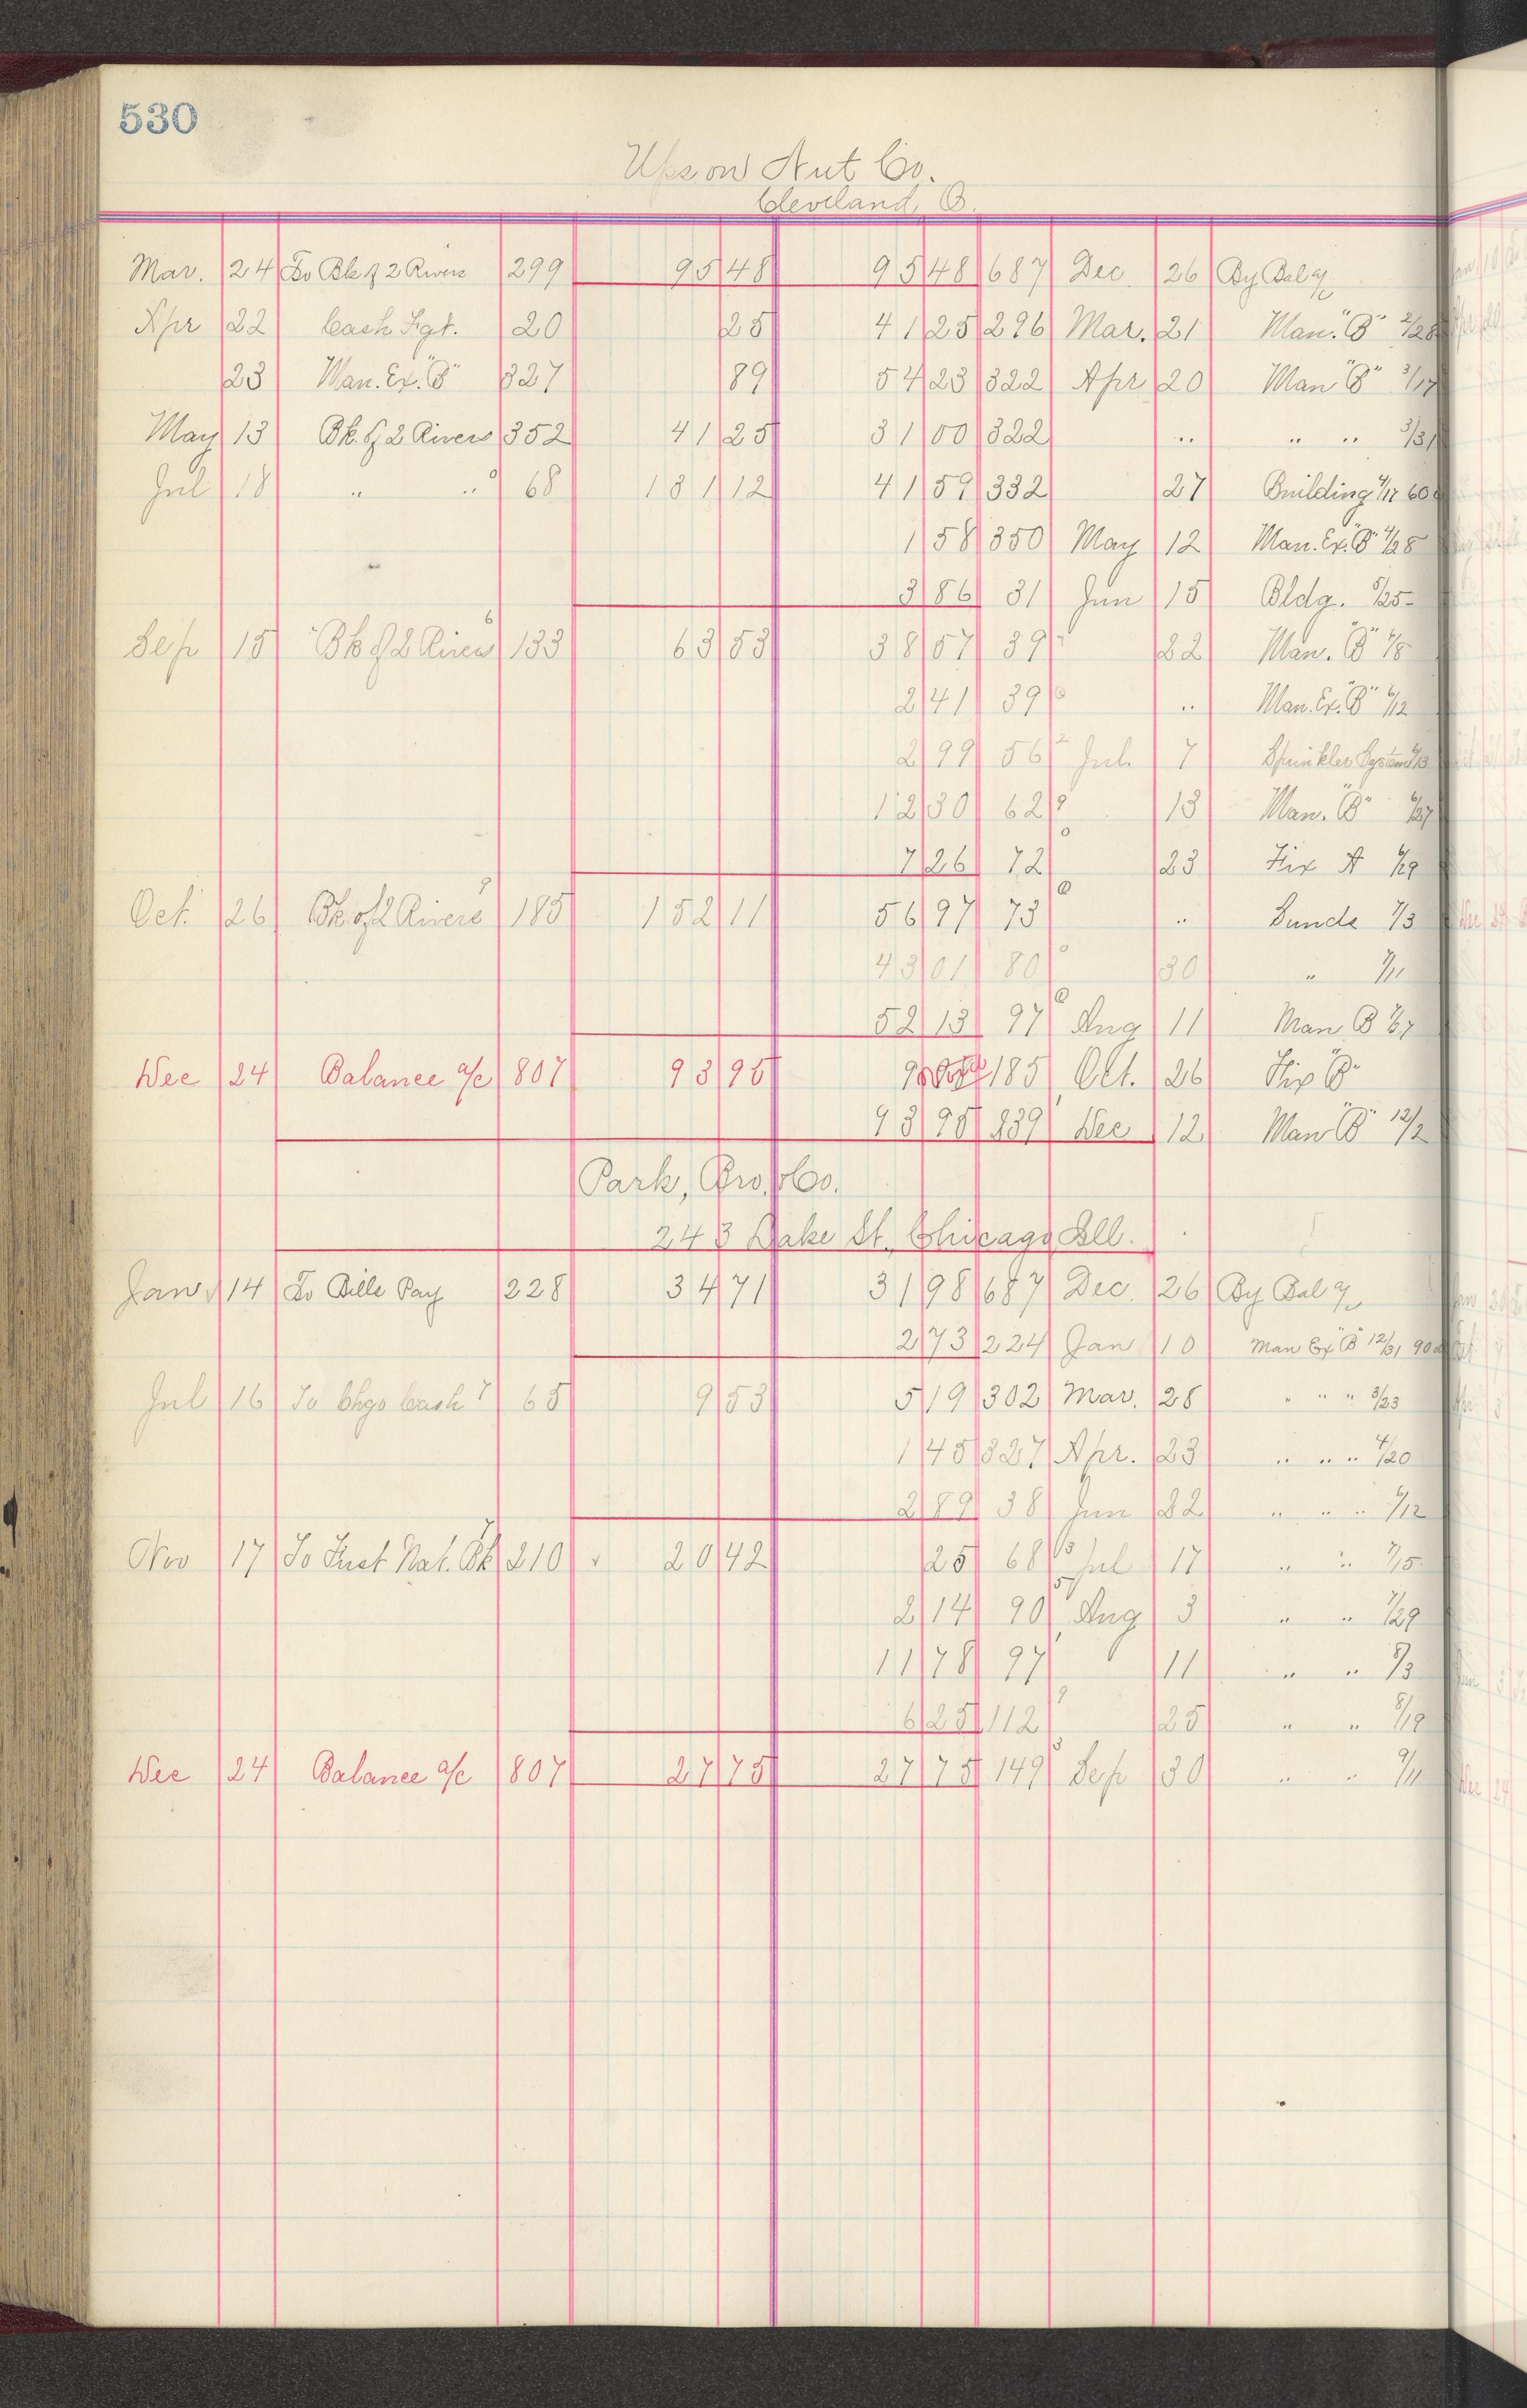 530
Upson Nut Co.
Cleveland, O.
Mar. 24 To Bk of 2 Rivers 299 95 48 95 48 687 Dec. 26 By Bal a/c
Apr 22 Cash Fgt. 20 25 41 25 296 Mar. 21 Man. "B" 2/28
23 Man. Ex. "B" 327 89 54 23 322 Apr 20 Man "B" 3/17
May 13 Bk. of 2 Rivers 352 41 25 31 00 322 " " " 3/31
Jul 18 " " 68 131 12 41 59 332 27 Building 4/17 60
1 58 350 May 12 Man. Ex. "B" 4/28
3 86 31 Jun 15 Bldg. 5/25
Sep 15 Bk of 2 Rivers 6 133 63 53 38 57 39 22 Man. "B" 6/8
2 41 39 " Man. Ex. "B" 6/12
2 99 56 Jul. 7 Sprinkler System 6/13
12 30 62 13 Man. "B" 6/27
7 26 72 23 Fix A 6/29
Oct. 26 Bk of 2 Rivers 9 185 152 11 56 97 73 " Sunds 7/3
43 01 80 30 " 7/11
52 13 97 Aug 11 Man B 7/27
Dec 24 Balance a/c 807 93 95 185 Oct. 26 Fix "B"
93 95 239 Dec 12 Man "B" 12/2
Park, Bro. & Co.
243 Lake St., Chicago, Ill.
Jan 14 To Bills Pay 228 34 71 31 98 687 Dec. 26 By Bal a/c
2 73 224 Jan 10 Man Ex "B" 12/31 90d
Jul 16 To Chgo Cash 7 65 9 53 5 19 302 Mar. 28 " " " 3/23
1 45 327 Apr. 23 " " " 4/20
2 89 38 Jun 22 " " " 6/12
Nov 17 To First Nat. Bk 7 210 20 42 25 68 Jul 17 " " 7/15
2 14 90 Aug 3 " " 7/29
11 78 97 11 " " 8/3
6 25 112 25 " " 8/19
Dec 24 Balance a/c 807 27 75 27 75 149 Sep 30 " " 9/11